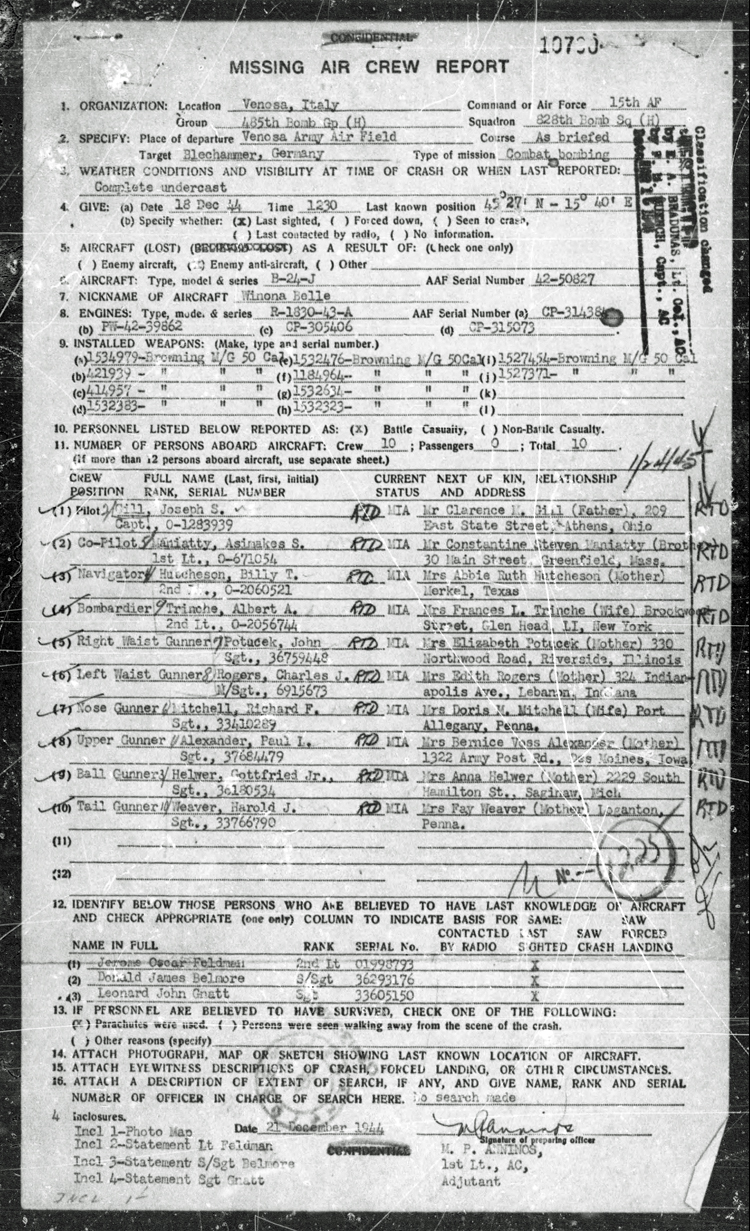 CONFIDENTIAL
MISSING AIR CREW REPORT
1. ORGANIZATION: Location Venosa, Italy Command or Air Force 15th AF
Group 485th Bomb Gp (H) Squadron 828th Bomb Sq (H)
2. SPECIFY: Place of departure Venosa Army Air Field Course As briefed
Target Blechammer, Germany Type of mission Combat bombing
3. WEATHER CONDITIONS AND VISIBILITY AT TIME OF CRASH OR WHEN LAST REPORTED:
Complete undercast
4. GIVE: (a) Date 18 Dec 44 Time 1230 Last known position 45° 27' N - 15° 40' E
(b) Specify whether: (X) Last sighted, ( ) Forced down, ( ) Seen to crash,
( ) Last contacted by radio, ( ) No information.
5. AIRCRAFT (LOST) AS A RESULT OF: (Check one only)
( ) Enemy aircraft, Enemy anti-aircraft, ( ) Other
6. AIRCRAFT: Type, model & series B-24-J AAF Serial Number 42-50827
7. NICKNAME OF AIRCRAFT Winona Belle
8. ENGINES: Type, mode. & series R-1830-43-A AAF Serial Number (a) CP-31438
(b) PW-42-39862 (c) CP-305406 (d) CP-315073
9. INSTALLED WEAPONS: (Make, type and serial number.)
(a) 1534979-Browning M/G 50 Cal (e) 1532476-Browning M/G 50Cal (i) 1527454-Browning M/G 50 Cal
(b) 421939 - " " (f) 1184964- " " (j) 1527371- " "
(c) 414957 - " " (g) 1532634- " " (k)
(d) 1532383- " " (h) 1532323- " " (l)
10. PERSONNEL LISTED BELOW REPORTED AS: (X) Battle Casualty, ( ) Non-Battle Casualty.
11. NUMBER OF PERSONS ABOARD AIRCRAFT: Crew 10 ; Passengers 0 ; Total 10
(If more than 12 persons aboard aircraft, use separate sheet.) 1/24/45
CREW FULL NAME (Last, first, initial) CURRENT NEXT OF KIN, RELATIONSHIP
POSITION RANK, SERIAL NUMBER STATUS AND ADDRESS
(1) Pilot Gill, Joseph S. RTD MIA Mr Clarence M. Gill (Father), 209 RTD
Capt., O-1283939 East State Street, Athens, Ohio
(2) Co-Pilot Maniatty, Asimakes S. RTD MIA Mr Constantine Steven Maniatty (Broth RTD
1st Lt., O-671054 30 Main Street, Greenfield, Mass.
(3) Navigator Hutcheson, Billy T. RTD MIA Mrs Abbie Ruth Hutcheson (Mother) RTD
2nd Lt., O-2060521 Merkel, Texas
(4) Bombardier Trinche, Albert A. RTD MIA Mrs Frances L. Trinche (Wife) RTD
2nd Lt., O-2056744 Street, Glen Head, LI, New York
(5) Right Waist Gunner Potucek, John RTD MIA Mrs Elizabeth Potucek (Mother) 330 RTD
Sgt., 36759448 Northwood Road, Riverside, Illinois
(6) Left Waist Gunner Rogers, Charles J. RTD MIA Mrs Edith Rogers (Mother) 324 Indian- RTD
M/Sgt., 6915673 apolis Ave., Lebanon, Indiana
(7) Nose Gunner Mitchell, Richard F. RTD MIA Mrs Doris M. Mitchell (Wife) Port RTD
Sgt., 33410289 Allegany, Penna.
(8) Upper Gunner Alexander, Paul L. RTD MIA Mrs Bernice Voss Alexander (Mother) RTD
Sgt., 37684479 1322 Army Post Rd., Des Moines, Iowa
(9) Ball Gunner Helwer, Gottfried Jr., RTD MIA Mrs Anna Helwer (Mother) 2229 South RTD
Sgt., 36180534 Hamilton St., Saginaw, Mich
(10) Tail Gunner Weaver, Harold J. RTD MIA Mrs Fay Weaver (Mother) Loganton, RTD
Sgt., 33766790 Penna.
(11)
(12) No.-- 1225
12. IDENTIFY BELOW THOSE PERSONS WHO ARE BELIEVED TO HAVE LAST KNOWLEDGE OF AIRCRAFT
AND CHECK APPROPRIATE (one only) COLUMN TO INDICATE BASIS FOR SAME: SAW
CONTACTED LAST SAW FORCED
NAME IN FULL RANK SERIAL No. BY RADIO SIGHTED CRASH LANDING
(1) Jerome Oscar Feldman 2nd Lt 01998793 X
(2) Donald James Belmore S/Sgt 36293176 X
(3) Leonard John Gnatt Sgt 33605150 X
13. IF PERSONNEL ARE BELIEVED TO HAVE SURVIVED, CHECK ONE OF THE FOLLOWING:
(X) Parachutes were used. ( ) Persons were seen walking away from the scene of the crash.
( ) Other reasons (specify)
14. ATTACH PHOTOGRAPH, MAP OR SKETCH SHOWING LAST KNOWN LOCATION OF AIRCRAFT.
15. ATTACH EYEWITNESS DESCRIPTIONS OF CRASH, FORCED LANDING, OR OTHER CIRCUMSTANCES.
16. ATTACH A DESCRIPTION OF EXTENT OF SEARCH, IF ANY, AND GIVE NAME, RANK AND SERIAL
NUMBER OF OFFICER IN CHARGE OF SEARCH HERE. No search made
4 Inclosures. Date 21 December 1944
Signature of preparing officer
Incl 1-Photo Map
Incl 2-Statement Lt Feldman CONFIDENTIAL M. P. ANNINOS,
Incl 3-Statement S/Sgt Belmore 1st Lt., AC,
Incl 4-Statement Sgt Gnatt Adjutant
INCL 1-
Classification changed